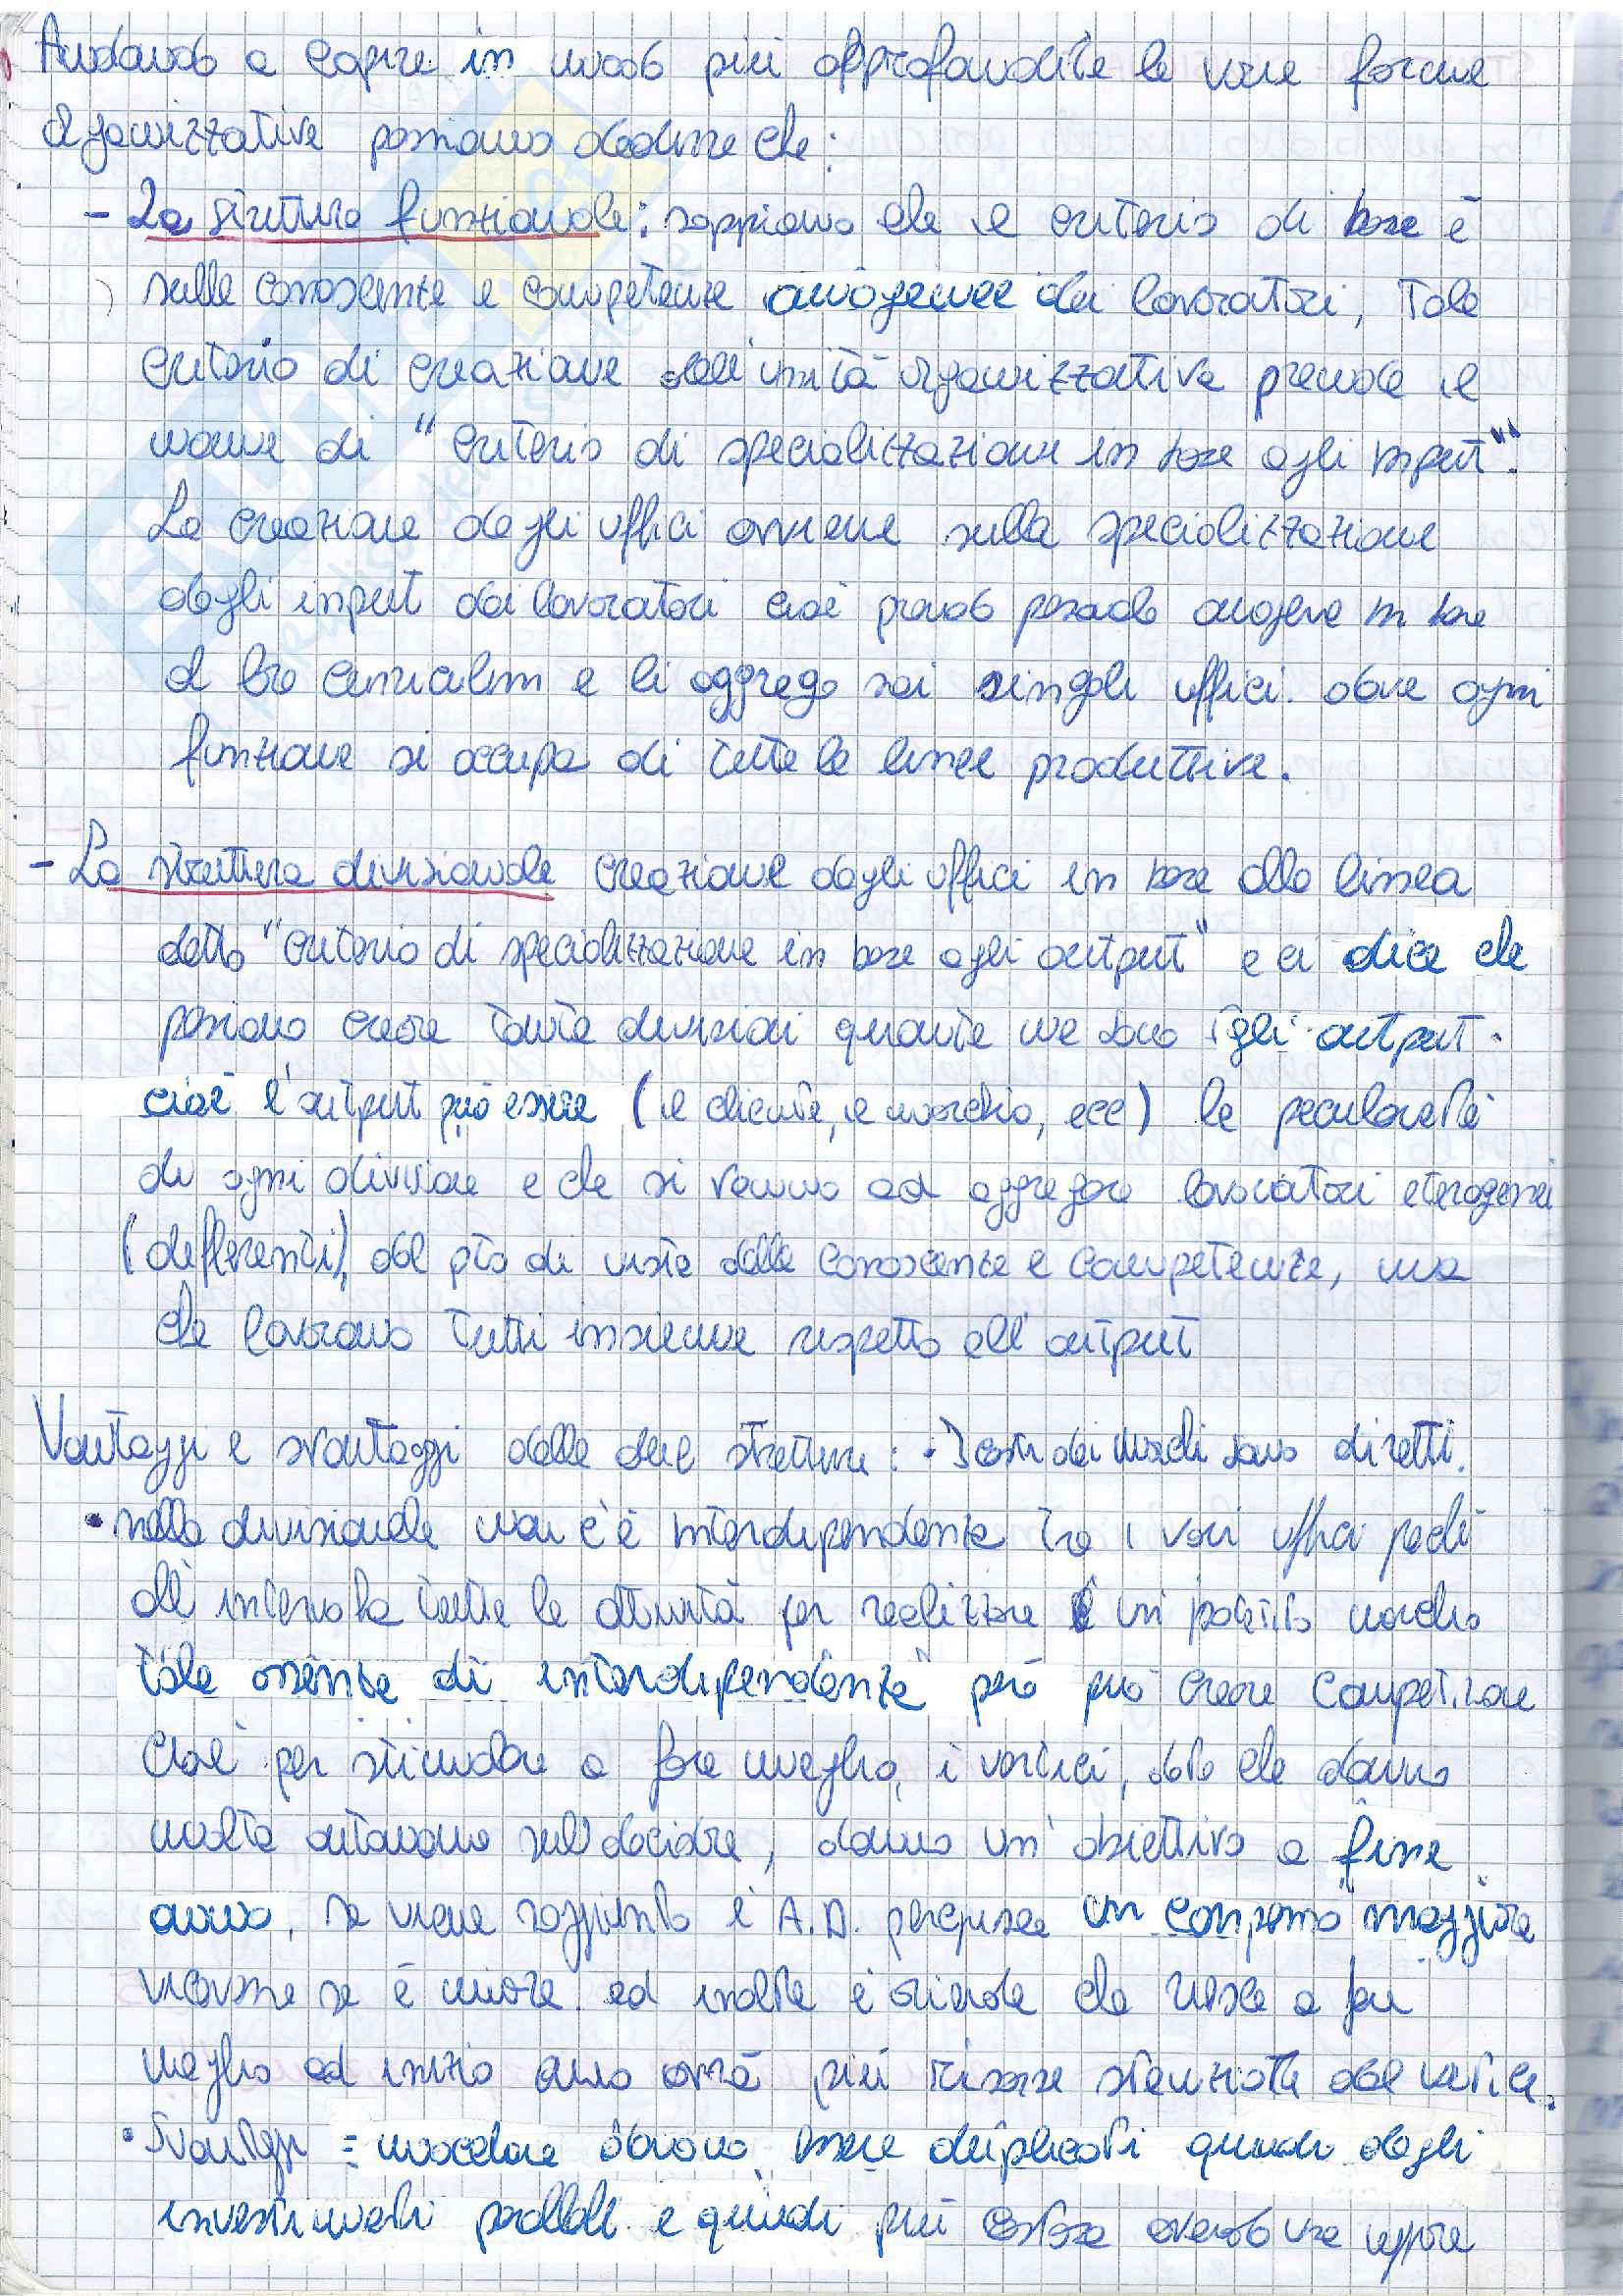 Andando a capire in modo più approfondite le varie forme
organizzative possiamo dedurre che:
- La struttura funzionale: sappiamo che il criterio di base è
sulle conoscenze e competenze omogenee dei lavoratori, Tale
criterio di creazione dell'unità organizzativa prende il
nome di "criterio di specializzazione in base agli input".
La creazione degli uffici avviene sulla specializzazione
degli input dei lavoratori cioè prendo persone omogenee in base
al loro curriculum e li aggrego nei singoli uffici. dove ogni
funzione si occupa di tutte le linee produttive.
- La struttura divisionale creazione degli uffici in base alla linea
detto "criterio di specializzazione in base agli output" e ci dice che
possiamo creare tante divisioni quante ne sono gli output.
cioè l'output può essere (il cliente, il marchio, ecc) le peculiarità
di ogni divisione è che si vanno ad aggregare lavoratori eterogenei
(differenti), dal pto di vista delle conoscenze e competenze, ma
che lavorano tutti insieme rispetto all'output
Vantaggi e svantaggi delle due strutture: • I costi dei marchi sono diretti.
• nella divisionale non c'è interdipendenza tra i vari uffici perché
all'interno ha tutte le attività per realizzare un marchio
tale assenza di interdipendenza però può creare competizione
cioè per stimolare a fare meglio, i vertici, dato che danno
molta autonomia nel decidere, danno un'obiettivo a fine
anno, se viene raggiunto l'A.D. percepisce un compenso maggiore
se è minore ed inoltre è che riesce a far
meglio ad inizio anno avrà più risorse stanziate dal vertice.
• Svantaggi = devono essere duplicati quindi degli
investimenti paralleli e quindi più